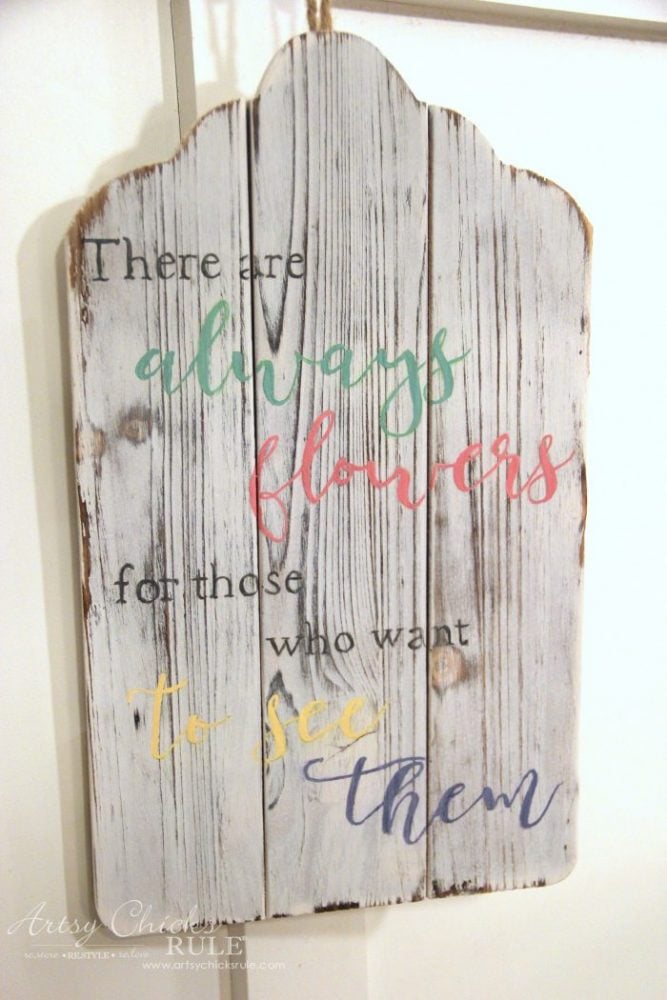 There are
always
flowers
for those
who want
to see
them
Artsy Chicks
RULE
restore • RESTYLE • re.love
www.artsychicksrule.com